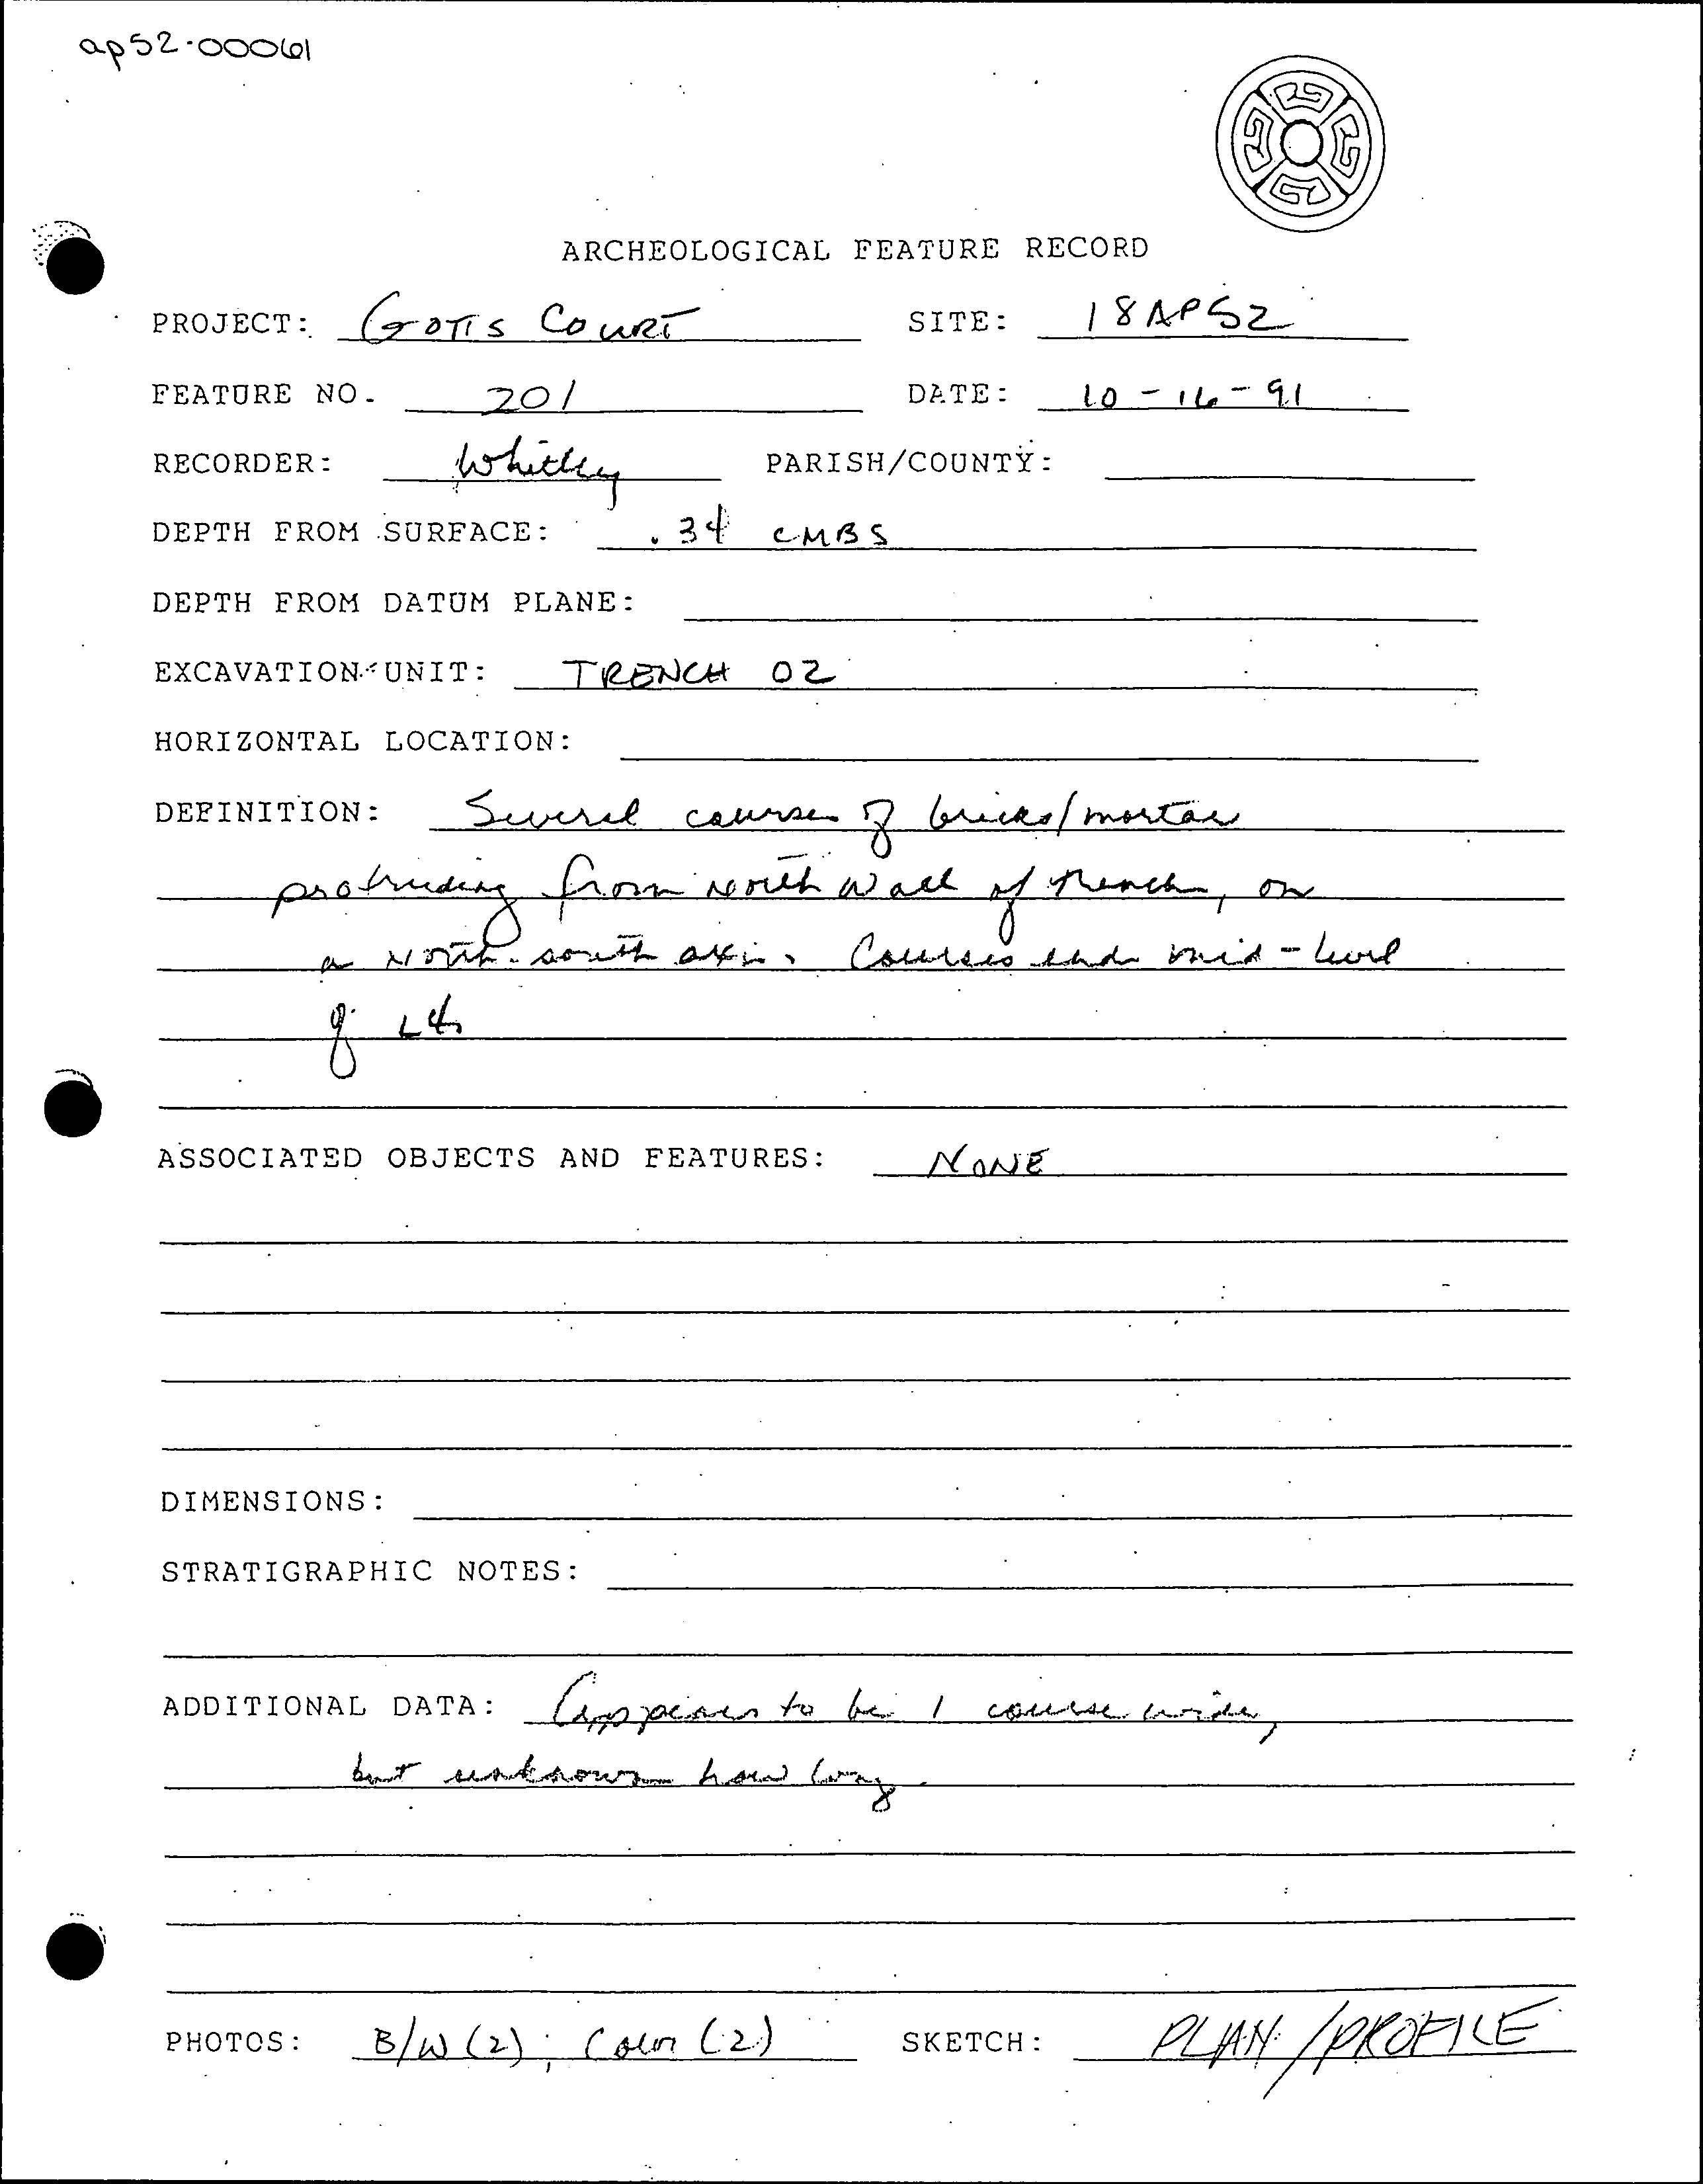 ap52-00061
ARCHEOLOGICAL FEATURE RECORD
PROJECT: GOTTS COURT SITE: 18AP52
FEATURE NO. 201 DATE: 10-16-91
RECORDER: Whitley PARISH/COUNTY:
DEPTH FROM SURFACE: .34 CMBS
DEPTH FROM DATUM PLANE:
EXCAVATION UNIT: TRENCH 02
HORIZONTAL LOCATION:
DEFINITION: Several courses of bricks/mortar
protruding from north wall of trench, on
a North-south axis. Courses end mid-level
of L4.
ASSOCIATED OBJECTS AND FEATURES: NONE
DIMENSIONS:
STRATIGRAPHIC NOTES:
ADDITIONAL DATA: Appears to be 1 course wide,
but unknown how long.
PHOTOS: B/W (2); Color (2) SKETCH: PLAN/PROFILE